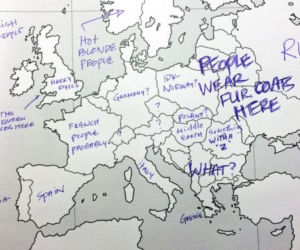 ISH
PEOPLE
HOT
BLONDE
PEOPLE
HARRY
STYLES
THE
QUEEN
LIVES HERE
GERMANY?
IDK
NORWAY?
PEOPLE
WEAR
FUR COATS
HERE
R
?
?
?
POLAND?
FRENCH
PEOPLE
PROBABLY
MIDDLE
EARTH
SOMETHING
WITH A
"Z"
ITALY
WHAT?
SPAIN
GREECE